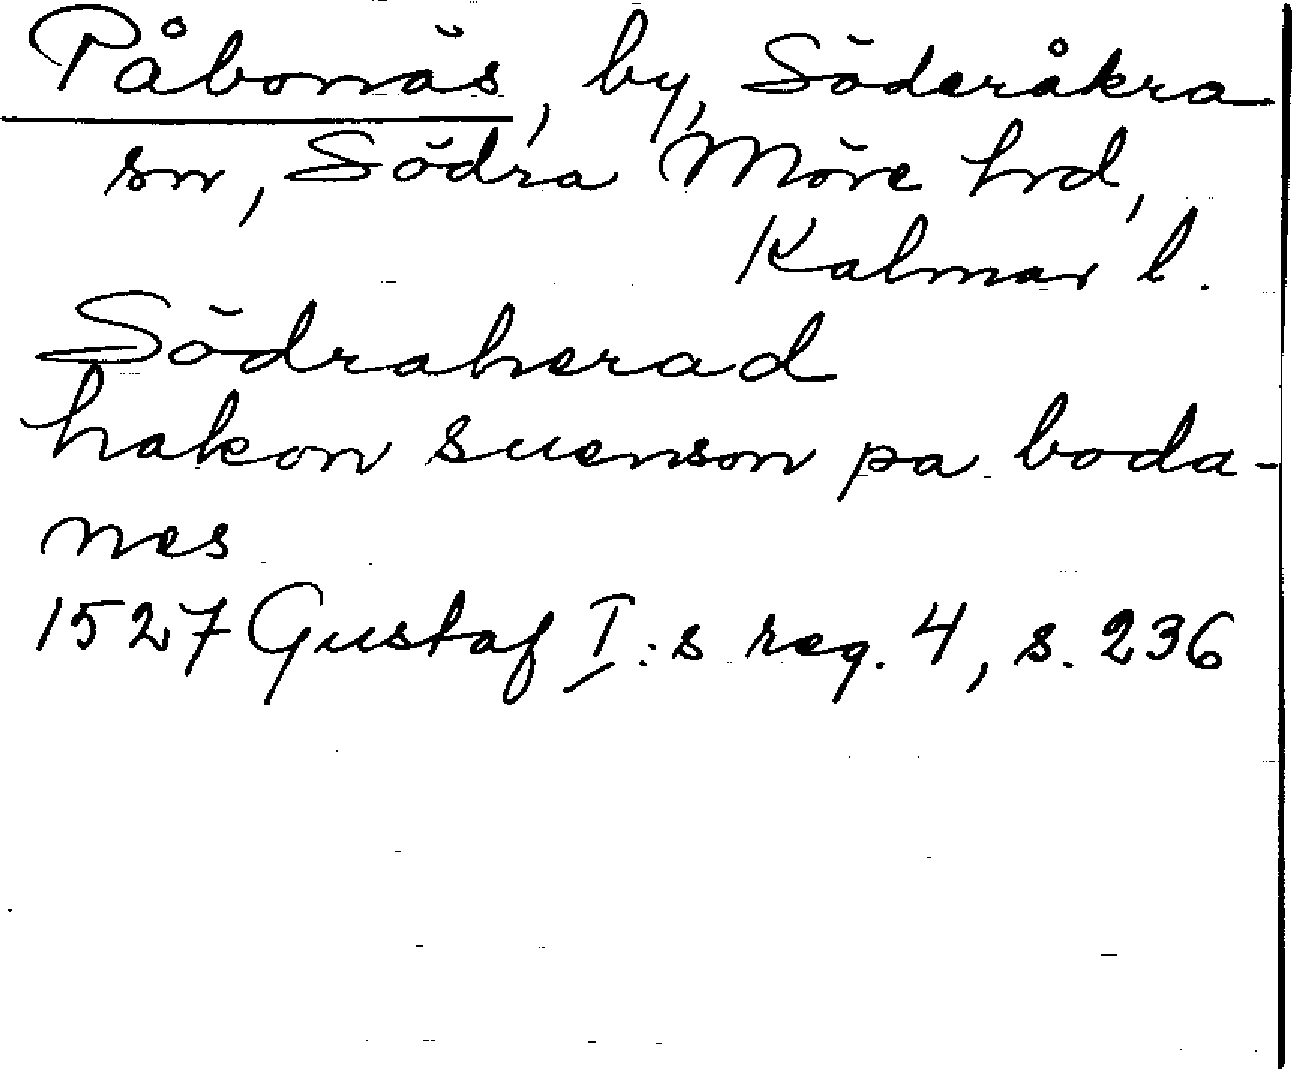 Påbonäs, by, Söderåkra
sn, Södra Möre hrd,
Kalmar l.
Södraherad
hakon suenson pa boda-
nes
1527 Gustaf I:s reg. 4, s. 236